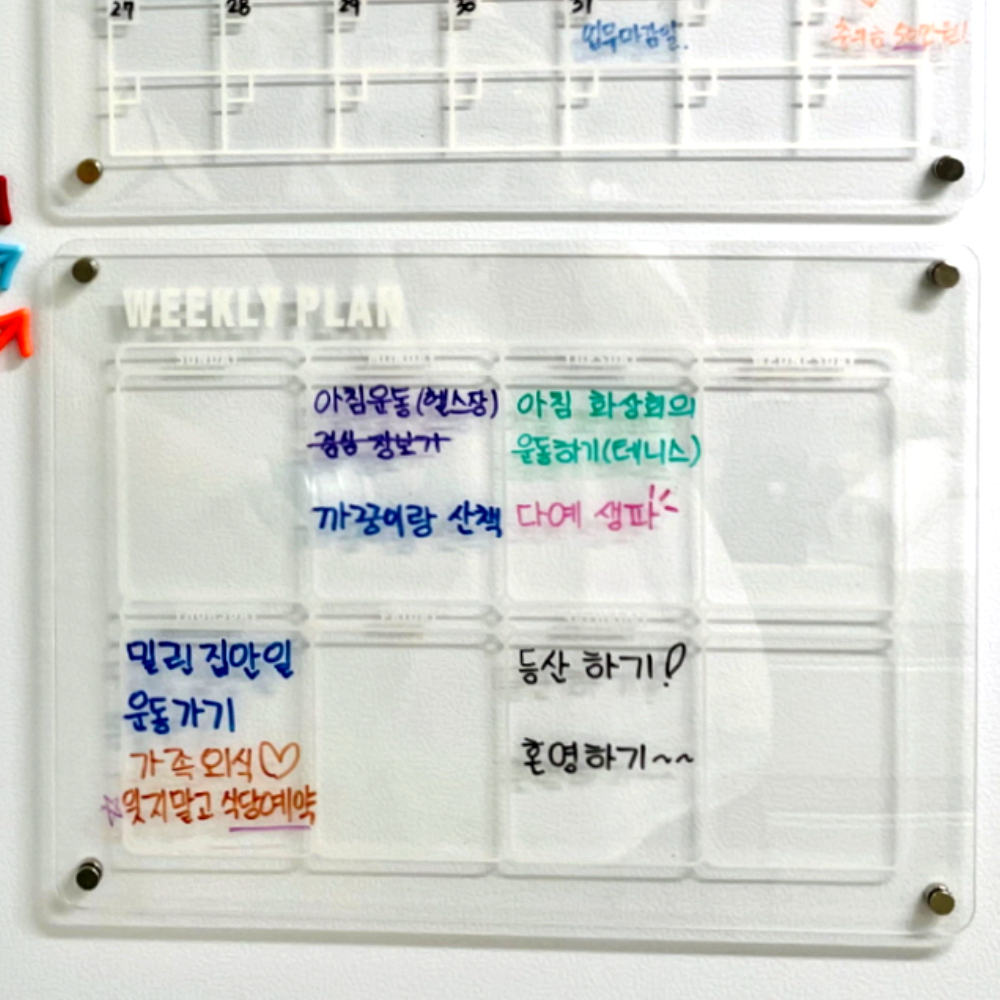 27 28 29 30 31
업무마감일!
WEEKLY PLAN
SUNDAY MONDAY TUESDAY WEDNESDAY
아침운동(헬스장)
점심 장보기
까꿍이랑 산책
아침 화상회의
운동하기(테니스)
다예 생파!
THURSDAY FRIDAY SATURDAY
밀린 집안일
운동가기
가족외식♡
☆잊지말고 식당예약
등산 하기!
혼영하기~~